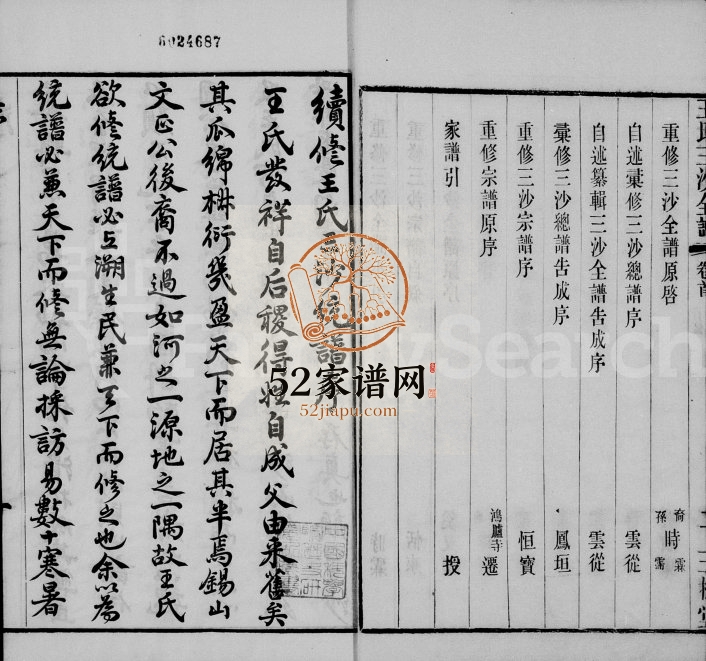 6024687
王氏三沙全譜 卷首
重修三沙全譜原啓 裔孫 時霖 霈
自述彙修三沙總譜序 雲從
自述纂輯三沙全譜告成序 雲從
彙修三沙總譜告成序 鳳垣
重修三沙宗譜序 恒寶
重修宗譜原序 鴻臚寺 遷
家譜引 投
續修王氏三沙統譜序
王氏發祥自后稷得姓自成父由来舊矣
其瓜綿椒衍幾盈天下而居其半焉錫山
文正公後裔不過如河之一源地之一隅故王氏
欲修統譜必上溯生民兼天下而修之也余以為
統譜必兼天下而修無論採訪易數十寒暑
52家谱网
52jiapu.com
FamilySearch